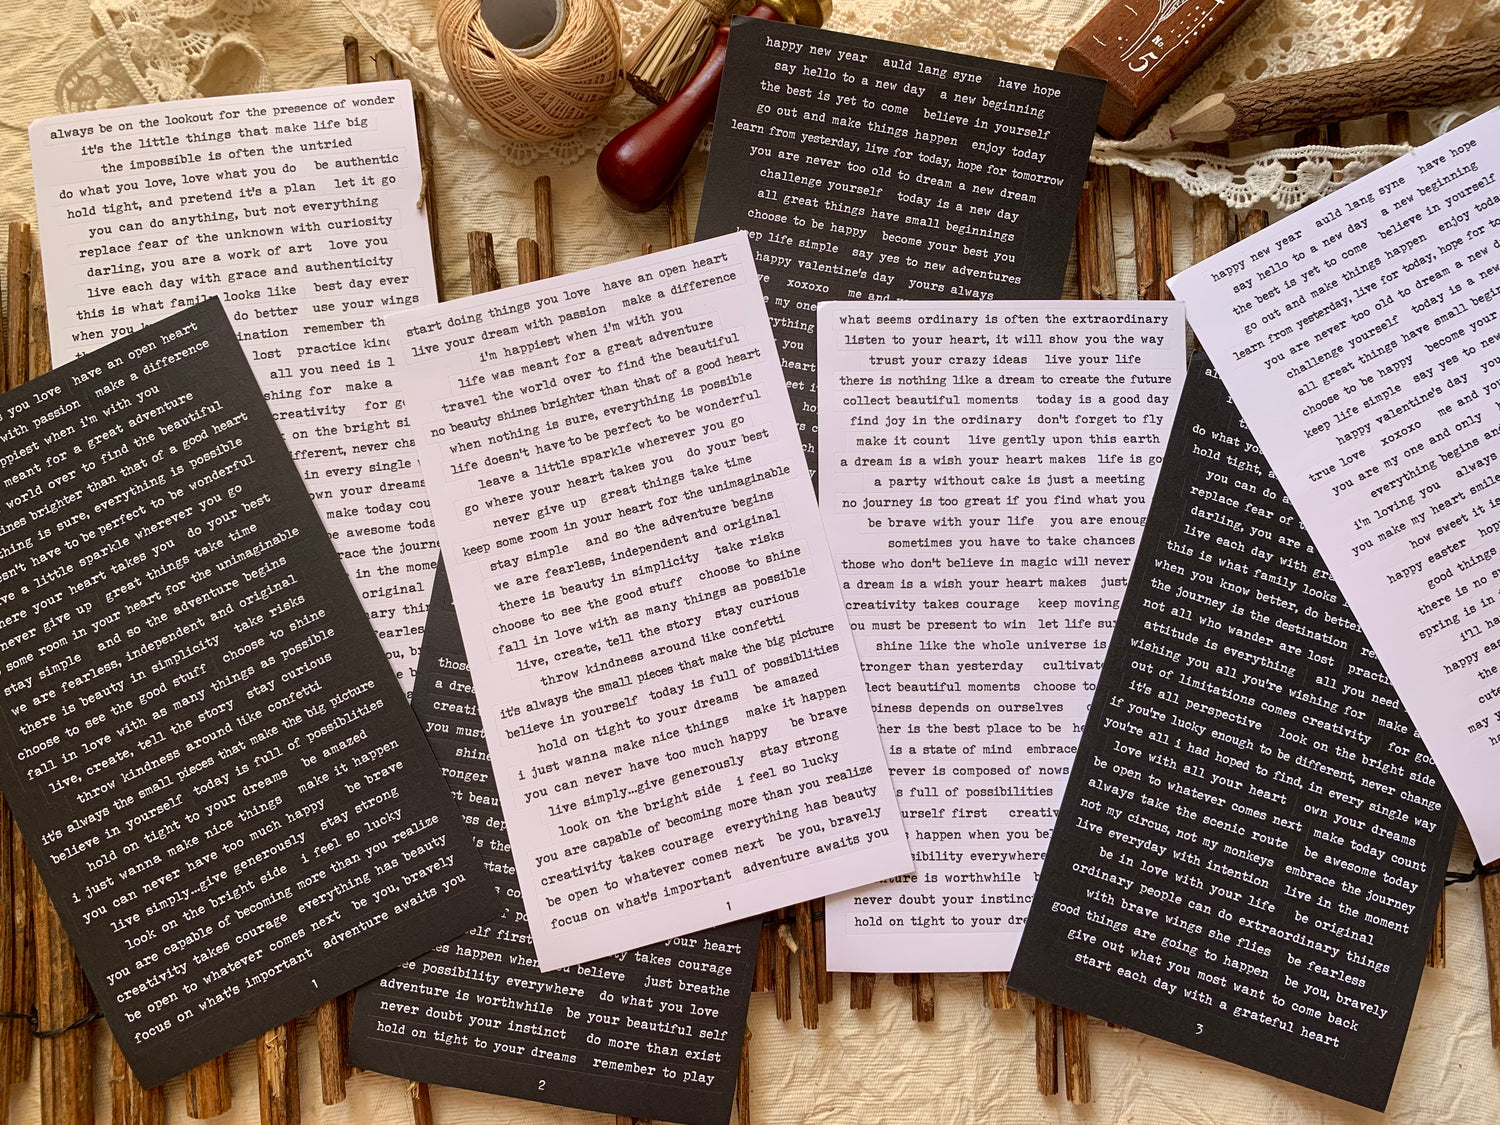 always be on the lookout for the presence of wonder
it's the little things that make life big
the impossible is often the untried
do what you love, love what you do be authentic
hold tight, and pretend it's a plan let it go
you can do anything, but not everything
replace fear of the unknown with curiosity
darling, you are a work of art love you
live each day with grace and authenticity
this is what family looks like best day ever
when you do better use your wings
ination remember
lost practice
all you need is
shing for make a
creativity for
on the bright
ifferent, never
in every single
own your dreams
make today
be awesome
race the
in the
original
happy new year auld lang syne have hope
say hello to a new day a new beginning
the best is yet to come believe in yourself
go out and make things happen enjoy today
learn from yesterday, live for today, hope for tomorrow
you are never too old to dream a new dream
challenge yourself today is a new day
all great things have small beginnings
choose to be happy become your best you
keep life simple say yes to new adventures
happy valentine's day yours always
xoxoxo me and
my one
No. 5
you love have an open heart
with passion make a difference
ppiest when i'm with you
meant for a great adventure
world over to find the beautiful
ines brighter than that of a good heart
thing is sure, everything is possible
sn't have to be perfect to be wonderful
ve a little sparkle wherever you go
here your heart takes you do your best
never give up great things take time
some room in your heart for the unimaginable
stay simple and so the adventure begins
we are fearless, independent and original
there is beauty in simplicity take risks
choose to see the good stuff choose to shine
fall in love with as many things as possible
live, create, tell the story stay curious
throw kindness around like confetti
it's always the small pieces that make the big picture
believe in yourself today is full of possiblities
hold on tight to your dreams be amazed
i just wanna make nice things make it happen
you can never have too much happy be brave
live simply...give generously stay strong
look on the bright side i feel so lucky
you are capable of becoming more than you realize
creativity takes courage everything has beauty
be open to whatever comes next be you, bravely
focus on what's important adventure awaits you
1
start doing things you love have an open heart
live your dream with passion make a difference
i'm happiest when i'm with you
life was meant for a great adventure
travel the world over to find the beautiful
no beauty shines brighter than that of a good heart
when nothing is sure, everything is possible
life doesn't have to be perfect to be wonderful
leave a little sparkle wherever you go
go where your heart takes you do your best
never give up great things take time
keep some room in your heart for the unimaginable
stay simple and so the adventure begins
we are fearless, independent and original
there is beauty in simplicity take risks
choose to see the good stuff choose to shine
fall in love with as many things as possible
live, create, tell the story stay curious
throw kindness around like confetti
it's always the small pieces that make the big picture
believe in yourself today is full of possiblities
hold on tight to your dreams be amazed
i just wanna make nice things make it happen
you can never have too much happy be brave
live simply...give generously stay strong
look on the bright side i feel so lucky
you are capable of becoming more than you realize
creativity takes courage everything has beauty
be open to whatever comes next be you, bravely
focus on what's important adventure awaits you
1
those
a dre
creati
you must
shine
ronger
self first your heart
happen when you believe takes courage
possibility everywhere just breathe
adventure is worthwhile do what you love
never doubt your instinct be your beautiful self
hold on tight to your dreams do more than exist
remember to play
2
what seems ordinary is often the extraordinary
listen to your heart, it will show you the way
trust your crazy ideas live your life
there is nothing like a dream to create the future
collect beautiful moments today is a good day
find joy in the ordinary don't forget to fly
make it count live gently upon this earth
a dream is a wish your heart makes life is go
a party without cake is just a meeting
no journey is too great if you find what you
be brave with your life you are enoug
sometimes you have to take chances
those who don't believe in magic will never
a dream is a wish your heart makes just
creativity takes courage keep moving
you must be present to win let life sur
shine like the whole universe is
tronger than yesterday cultivate
lect beautiful moments choose to
piness depends on ourselves
her is the best place to be
is a state of mind embrace
rever is composed of nows
s full of possibilities
urself first creativ
happen when you bel
sibility everywhere
ture is worthwhile b
never doubt your instinc
hold on tight to your dre
do what you
hold tight, a
you can do a
replace fear of
darling, you are a
live each day with gra
this is what family looks
when you know better, do better
the journey is the destination
not all who wander are lost practi
attitude is everything all you need
wishing you all you're wishing for make a
out of limitations comes creativity for go
it's all perspective look on the bright side
if you're lucky enough to be different, never change
you're all i had hoped to find, in every single way
love with all your heart own your dreams
be open to whatever comes next make today count
always take the scenic route be awesome today
not my circus, not my monkeys embrace the journey
live everyday with intention live in the moment
be in love with your life be original
ordinary people can do extraordinary things
with brave wings she flies be fearless
good things are going to happen be you, bravely
give out what you most want to come back
start each day with a grateful heart
3
happy new year auld lang syne have hope
say hello to a new day a new beginning
the best is yet to come believe in yourself
go out and make things happen enjoy toda
learn from yesterday, live for today, hope for to
you are never too old to dream a new d
challenge yourself today is a new
all great things have small begin
choose to be happy become your
keep life simple say yes to new
happy valentine's day you
xoxoxo me and you
true love
you are my one and only
everything begins and
i'm loving you always
you make my heart smile
how sweet it is
happy easter hop
good things
there is no su
spring is in
i'll ha
happy eas
the
cute
may y
ha